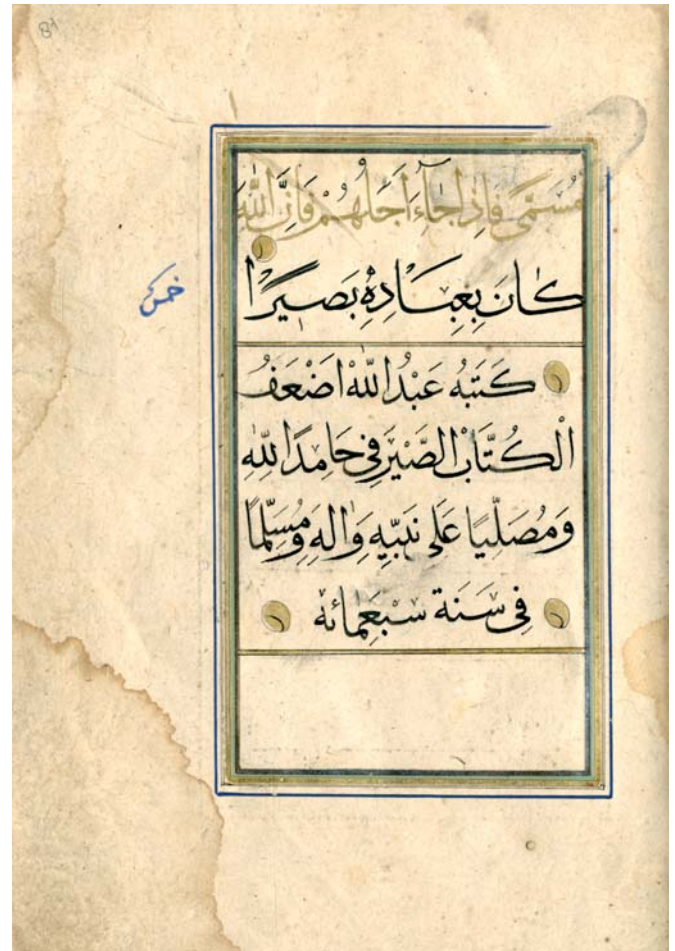 81
مُسَمًّى فَاِذَا جَاۤءَ اَجَلُهُمْ فَاِنَّ اللّٰهَ
كَانَ بِعِبَادِهٖ بَصِيرًا
خمس
كَتَبَهُ عَبْدُ اللّٰهِ اَضْعَفُ
الْكُتَّابِ الصَّيْرَفِى حَامِدًا لِلّٰهِ
وَمُصَلِّيًا عَلٰى نَبِيِّهِ وَاٰلِهِ وَمُسَلِّمًا
فِى سَنَة سَبْعِمِائَة